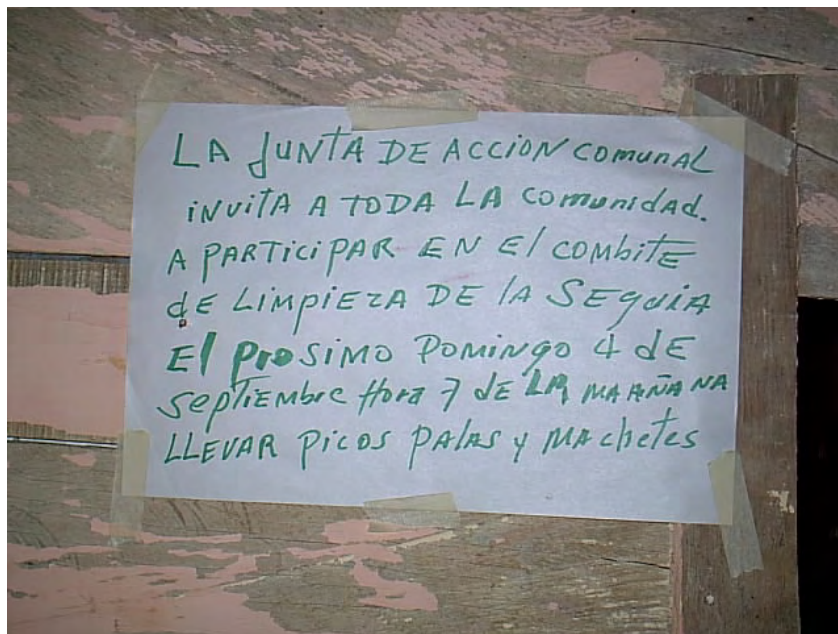 LA JUNTA DE ACCION COMUNAL
iNVITA A TODA LA comunidad.
A PARTICIPAR EN El COMBITE
dE LIMPIEZA DE lA SEquiA
El PROSIMO DOMINGO 4 dE
SEPTIEMbre Hora 7 de LA MAÑANA
LLEVAR PICOS PALAS y MAchetes